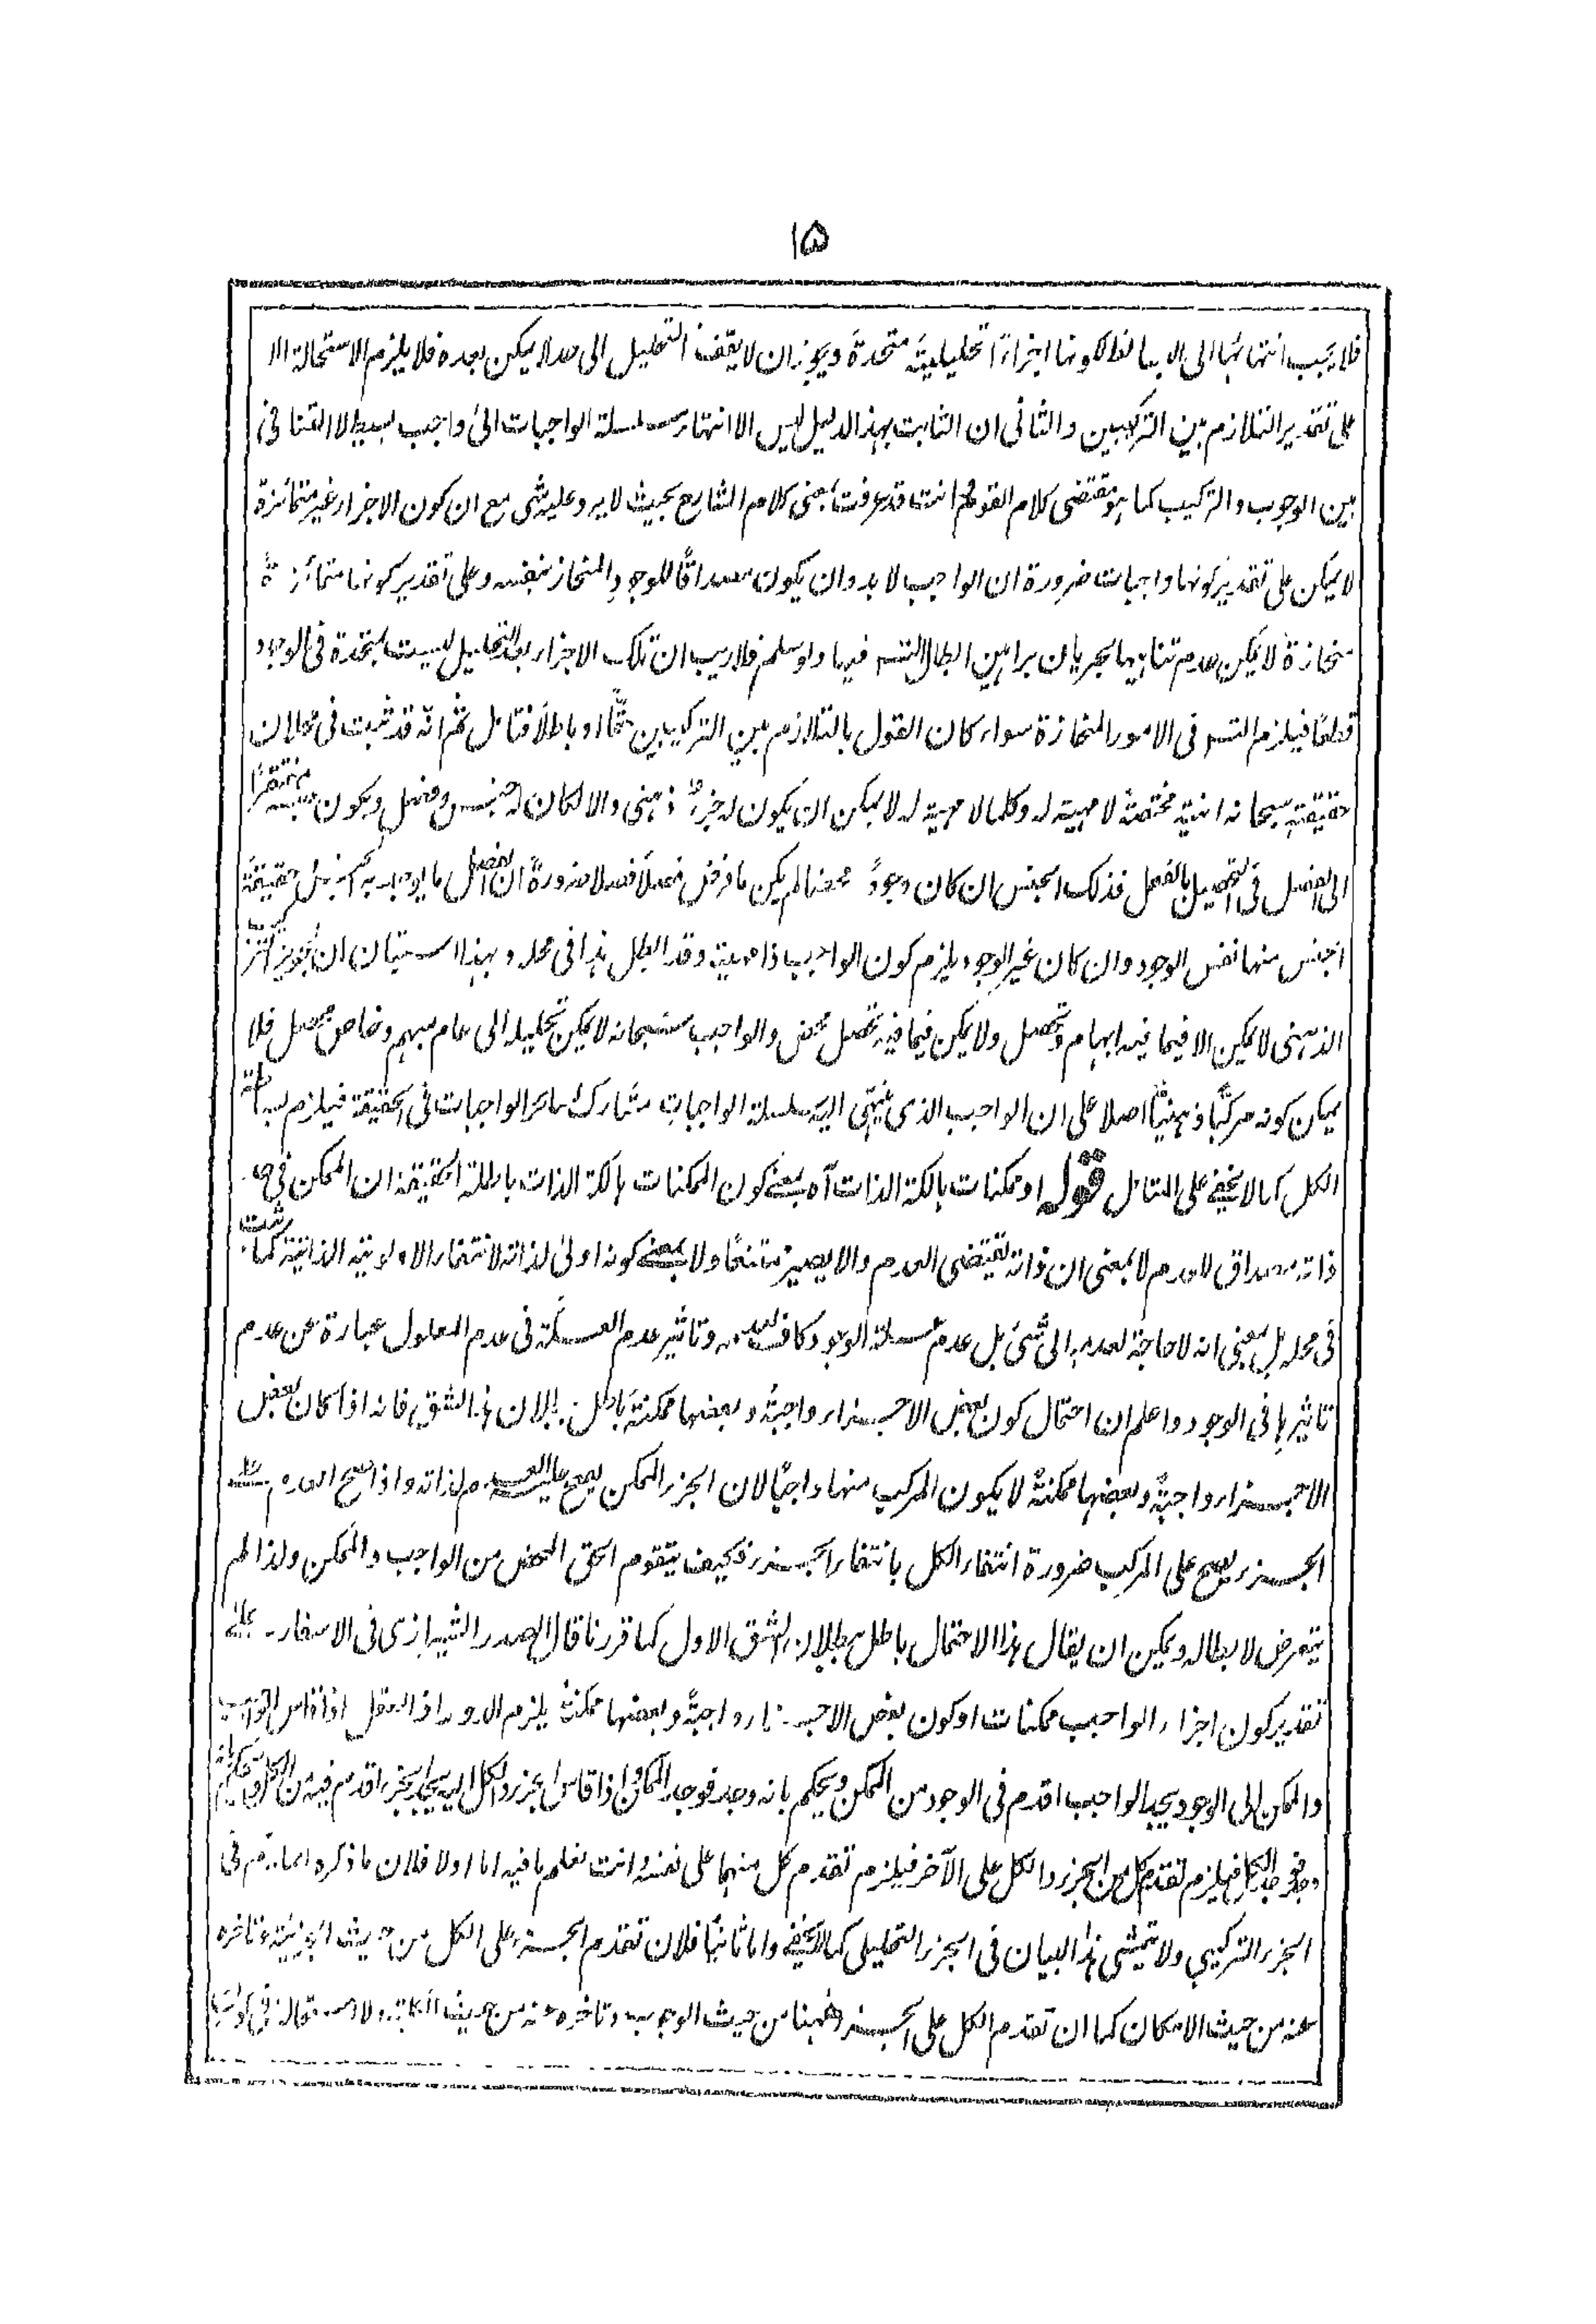 ۱۵
فلا يجب انتهائها الى البسائط لكونها اجزاءً تحليلية متحدة ويجوز ان لا يقف التحليل الى حد لا يمكن بعده فلا يلزم الاستحالة الا
على تقدير التلازم بين التركيبين والثانى ان الثابت بهذا الدليل ليس الا انتهاء سلسلة الواجبات الى واجب بسيط لا التنافى
بين الوجوب والتركيب كما هو مقتضى كلام القوم انت قد عرفت معنى كلام الشارح بحيث لا يرد عليه شى مع ان كون الاجزاء غير متمائزة
لا يمكن على تقدير كونها واجبات ضرورة ان الواجب لا بد وان يكون مصداقًا للوجود المنحاز بنفسه وعلى تقدير كونها متمائزة
منحازة لا يمكن عدم تناهيها لجريان براهين ابطال التسـ فيها ولو سلم فلا ريب ان تلك الاجزاء بعد التحليل ليست بمتحدة فى الوجود
قطعًا فيلزم التسـ فى الامور المنحازة سواء كان القول بالتلازم بين التركيبين حقًا او باطلاً فتامل ثم انه قد ثبت فى محله ان
حقيقته سبحانه انية محضة لا مهية له وكلما لا مهية له لا يمكن ان يكون له جزءٌ ذهنى والا لكان له جنس وفصل ويكون جنسه مفتقرًا
الى الفصل فى التحصيل بالفعل فذلك الجنس ان كان وجودً محضا لم يكن ما فرض فصلاً فصلا ضرورةً ان الفصل ما يوجد به الجنس حقيقة
الجنس منها نفس الوجود وان كان غير الوجود يلزم كون الواجب ذا مهية وقد ابطل هذا فى محله وبهذا استبان ان تجويز التركيب
الذهنى لا يمكن الا فيما فيه ابهام وتحصل ولا يمكن فيما فيه تحصل محض والواجب سبحانه لا يمكن تحليله الى عام مبهم وخاص محصل فلا
يمكن كونه مركبًا ذهنيًا اصلا على ان الواجب الذى ينتهى اليه سلسلة الواجبات مشارك لسائر الواجبات فى الحقيقة فيلزم بساطة
الكل كما لا يخفى على المتامل قوله او ممكنات هالكة الذات آه بمعنى كون الممكنات هالكة الذات باطلة الحقيقة ان الممكن فى
ذاته مصداق للعدم لا بمعنى ان ذاته تقتضى العدم والا يصير ممتنعًا ولا بمعنى كونه اولى لذاته لانتفاء الاولوية الذاتية كما ثبت
فى محله بل بمعنى انه لا حاجة لعدمه الى شئ بل عدم علة الوجود كاف لعدمه وتاثير عدم العلة فى عدم المعلول عبارة عن عدم
تاثيرها فى الوجود واعلم ان احتمال كون بعض الاجزاء واجبة وبعضها ممكنة باطل ببطلان هذا الشق فانه اذا كان بعض
الاجزاء واجبةً وبعضها ممكنةً لا يكون المركب منها واجبًا لان الجزء الممكن يصح عليه العدم لذاته واذا صح العدم على
الجزء يصح على المركب ضرورة انتفاء الكل بانتفاء الجزء فكيف يتقوم الحق المحض من الواجب والممكن ولذا لم
يتعرض لابطاله ويمكن ان يقال هذا الاحتمال باطل ببطلان الشق الاول كما قررنا قال الصدر الشيرازى فى الاسفار على
تقدير كون اجزاء الواجب ممكنات او كون بعض الاجزاء واجبةً وبعضها ممكنةً يلزم الدور اذ العقل اذا قاس الواجب
والممكن الى الوجود يجد الواجب اقدم فى الوجود من الممكن ويحكم بانه وجد فوجد الممكن واذا قاس الجزء والكل اليه يجد الجزء اقدم فيه من الكل
وجد فوجد الكل فيلزم تقدم كل من الجزء والكل على الآخر فيلزم تقدم كل منهما على نفسه وانت تعلم ما فيه اما اولا فلان ما ذكره انما يتم فى
الجزء التركيبى ولا يتمشى هذا البيان فى الجزء التحليلى كما لا يخفى واما ثانيًا فلان تقدم الجزء على الكل من حيث الجزئية وتاخره
عنه من حيث الامكان كما ان تقدم الكل على الجزء ههنا من حيث الوجوب وتاخره عنه من حيث الكلية ولا استحالة فى